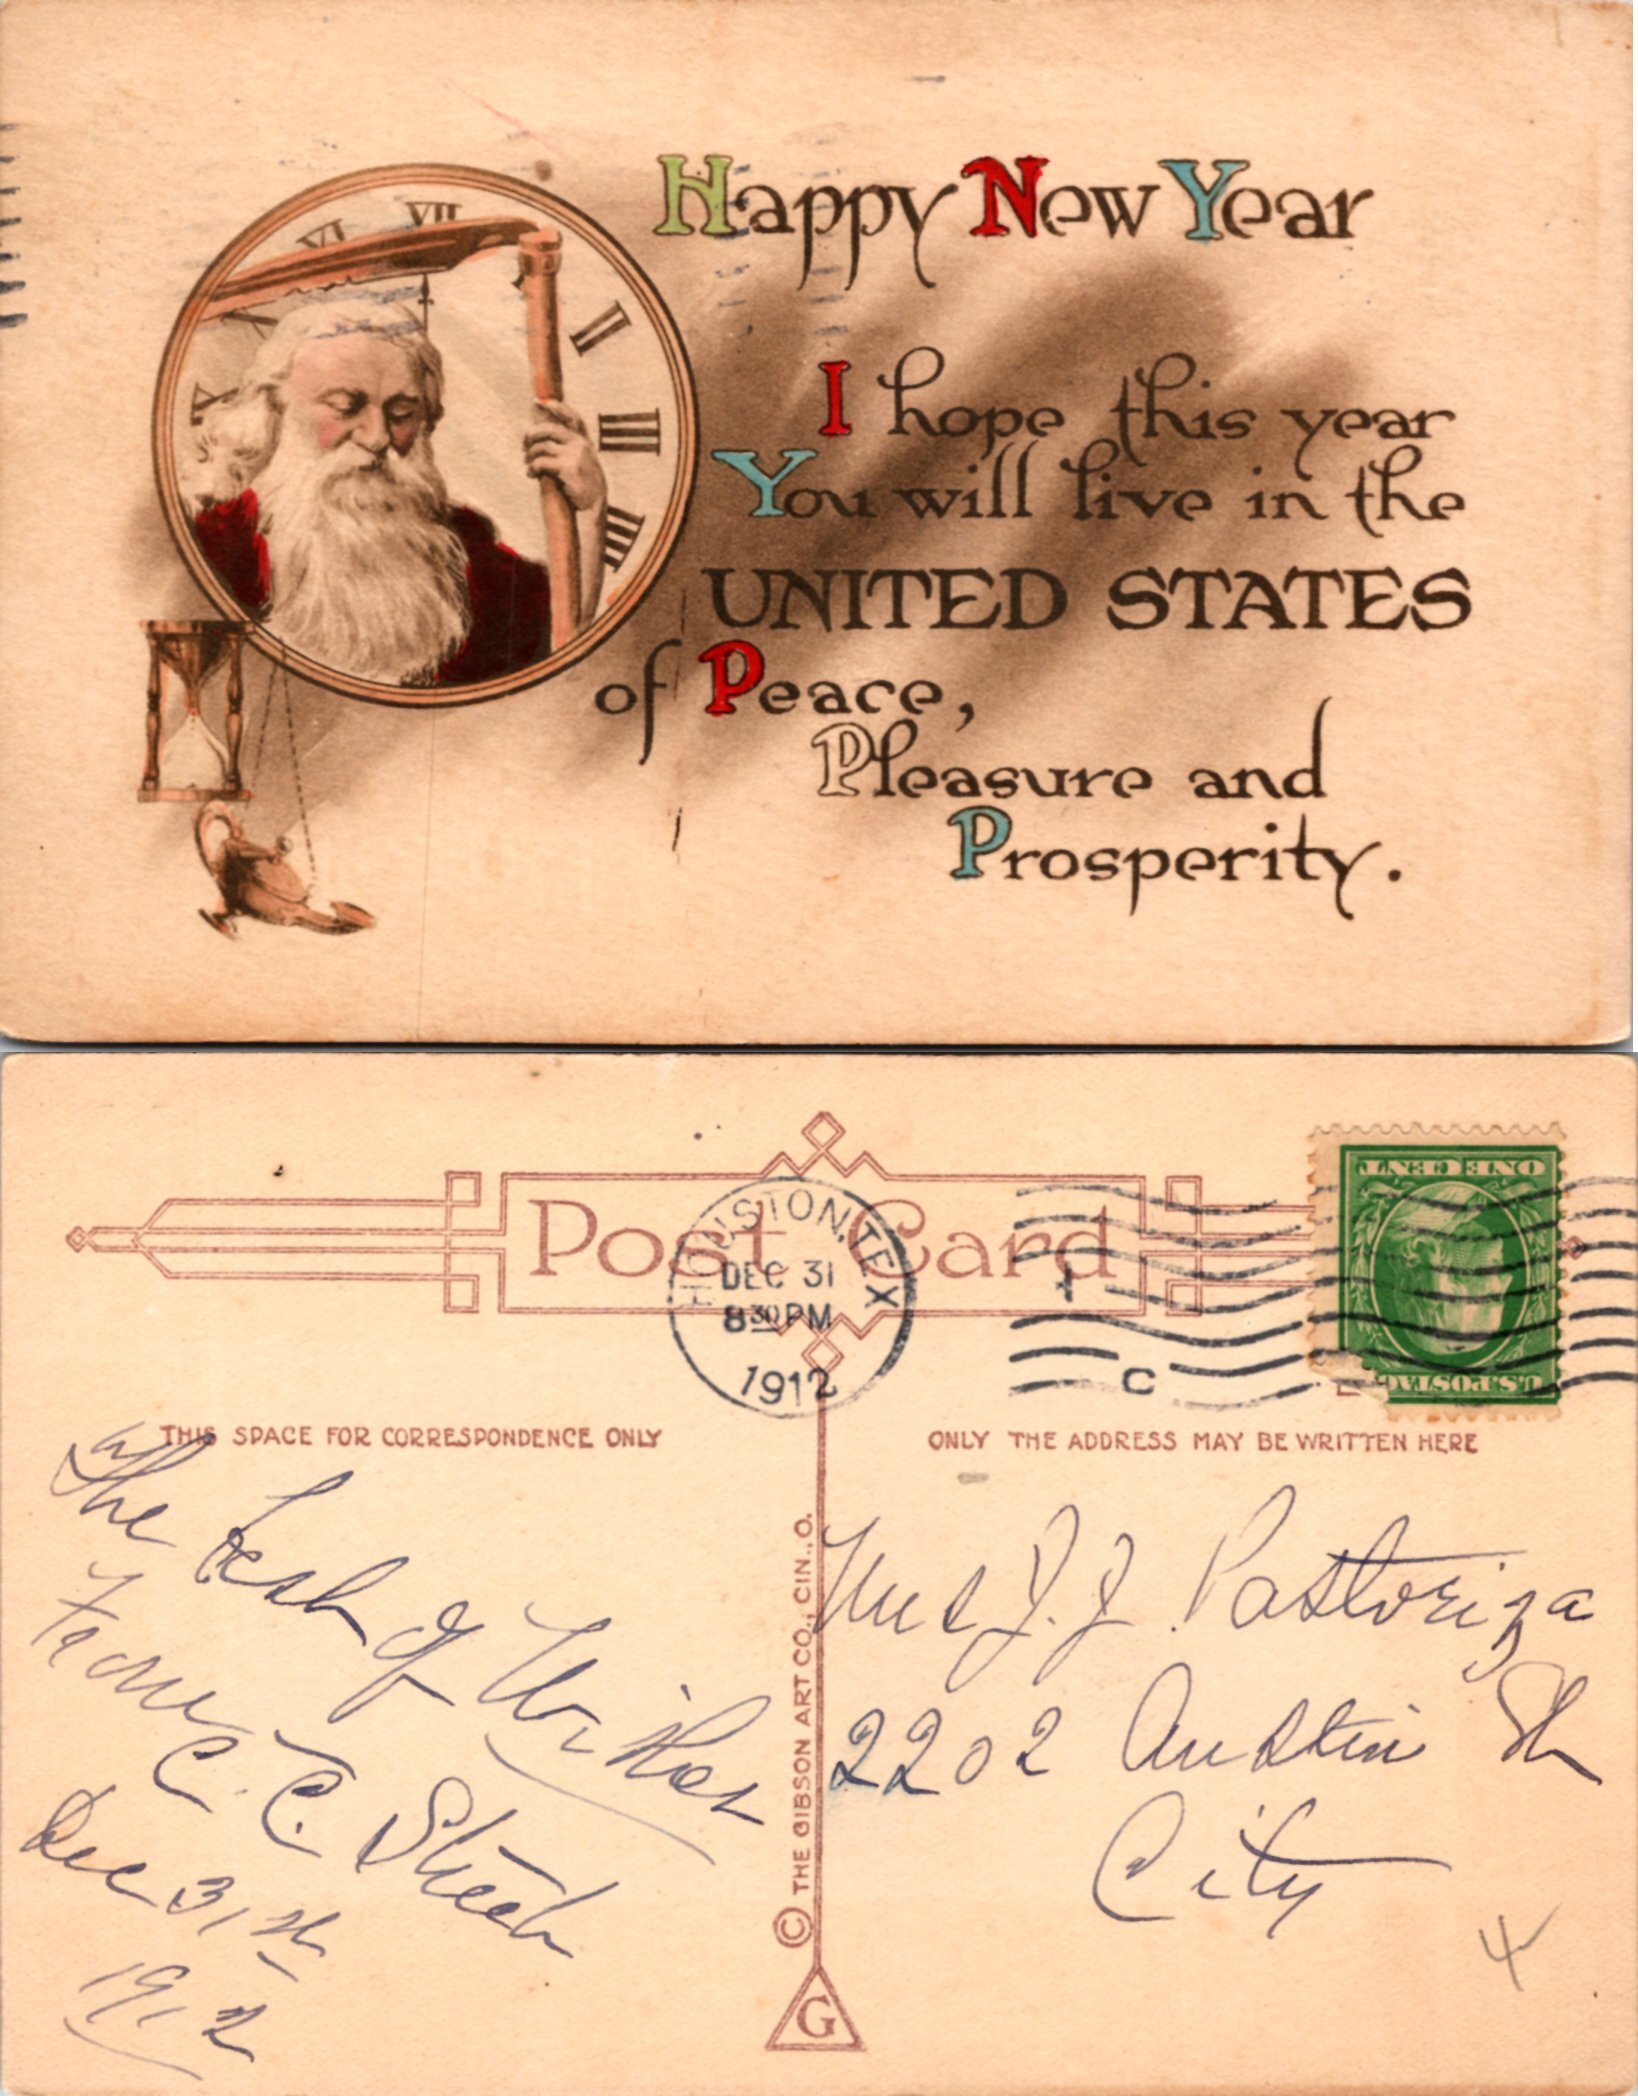 Happy New Year
I hope this year
You will live in the
UNITED STATES
of Peace,
Pleasure and
Prosperity.
VII
VI
X
II
III
IIII
Post Card
HOUSTON, TEX
DEC 31
8 30 PM
1912
C
ONE CENT
U.S. POSTAG
THIS SPACE FOR CORRESPONDENCE ONLY
ONLY THE ADDRESS MAY BE WRITTEN HERE
The Best of Wishes
From
C. C. Streeh
Dec 31st
1912
© THE GIBSON ART CO., CIN., O.
G
Mrs J. J. Pastoriza
2202 Austin St
City
4